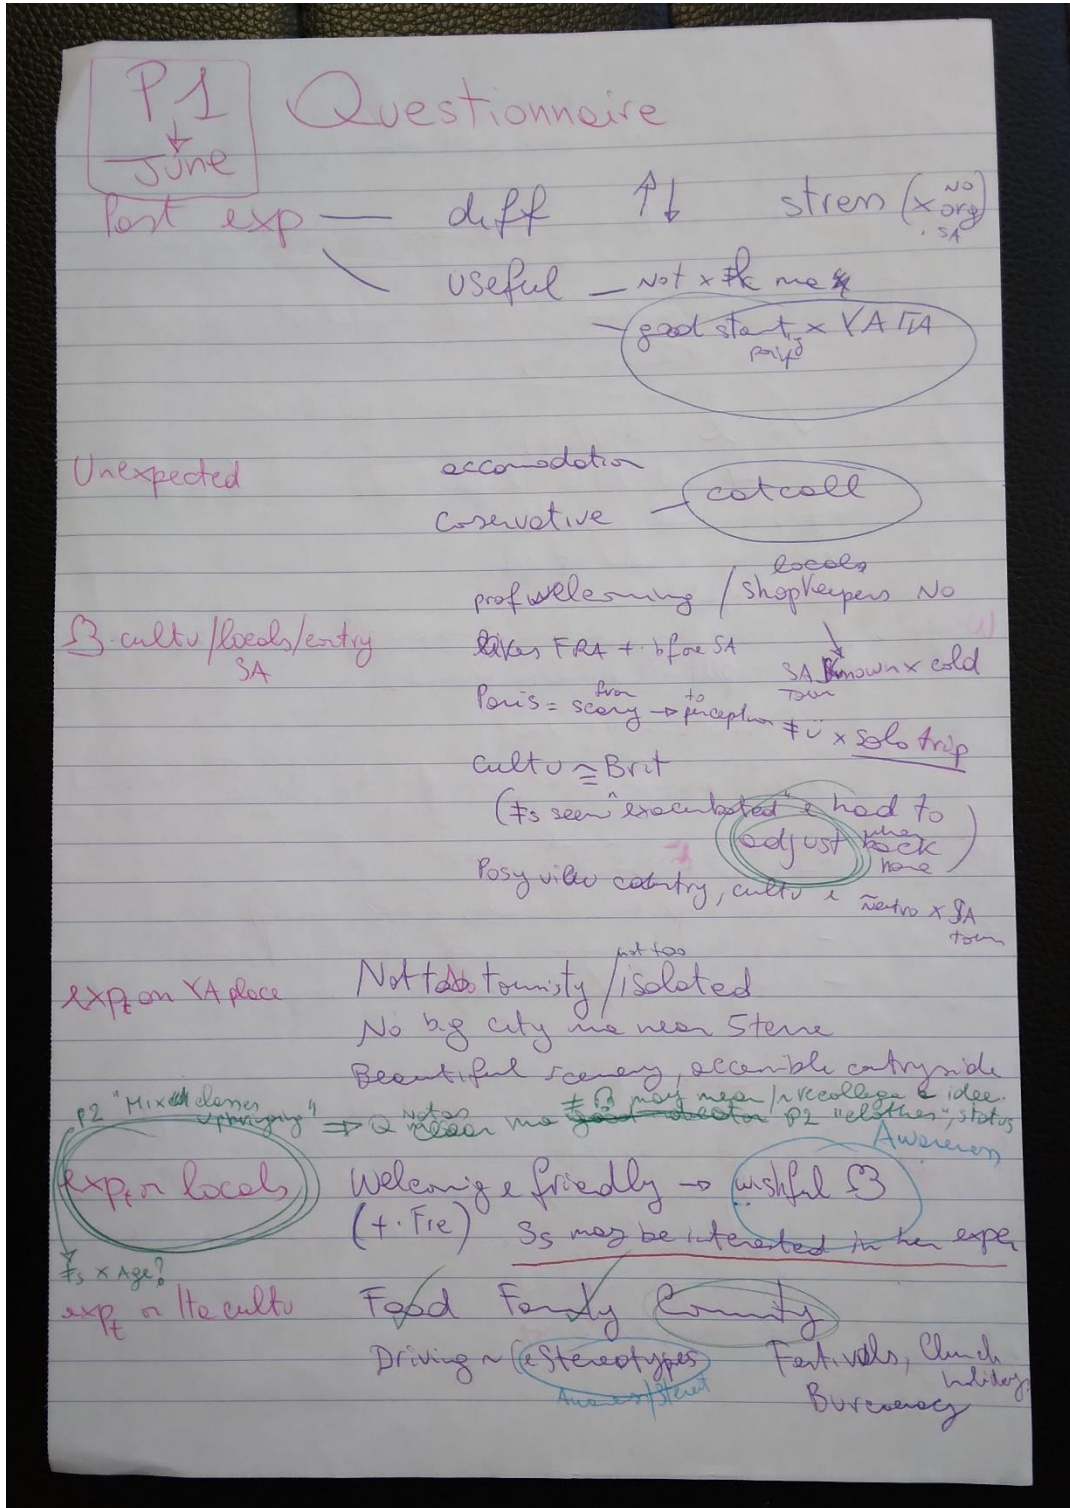 P1 Questionnaire
↓
June
Past exp — diff ↑↓ stress (x NO org SA)
useful — Not x
— good start x YATIA
Unexpected accomodation
Coservative — catcall
locals
/ shopkeepers No
cultu/locals/cntry
SA
FRA + bfore SA
SA known x cold
town
Paris = from scary → to perception
x solo trip
Cultu ≅ Brit
(≠s seen "exacerbated" e had to
adjust when back home)
Posy view country, cultu e neutro x SA
town
expt on YA place Not too touristy / not too isolated
No big city ma near Stene
Beautiful scenery, accessible cntryside
P2 "Mix classes phrasing" ⇒ Q Not as clear ma
P2 "clothes", status
Awareness
expt on locals Welcomig e friendly → wishful
(+. Fie) Ss may be interested in her exper
≠s x Age?
expt on Ita cultu Food Family Comunity
Driving ~ (e Stereotypes Festivals, Church holidays
Bureaucracy